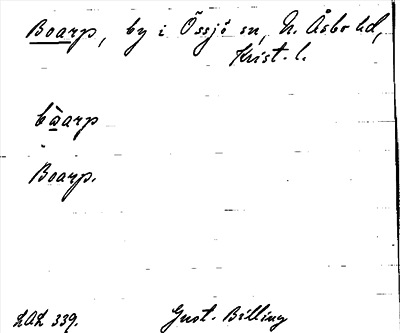 Boarp, by i Össjö sn, N. Åsbo hd,
Krist. l.
bàarp
Boarp.
LAL 339.
Gust. Billing